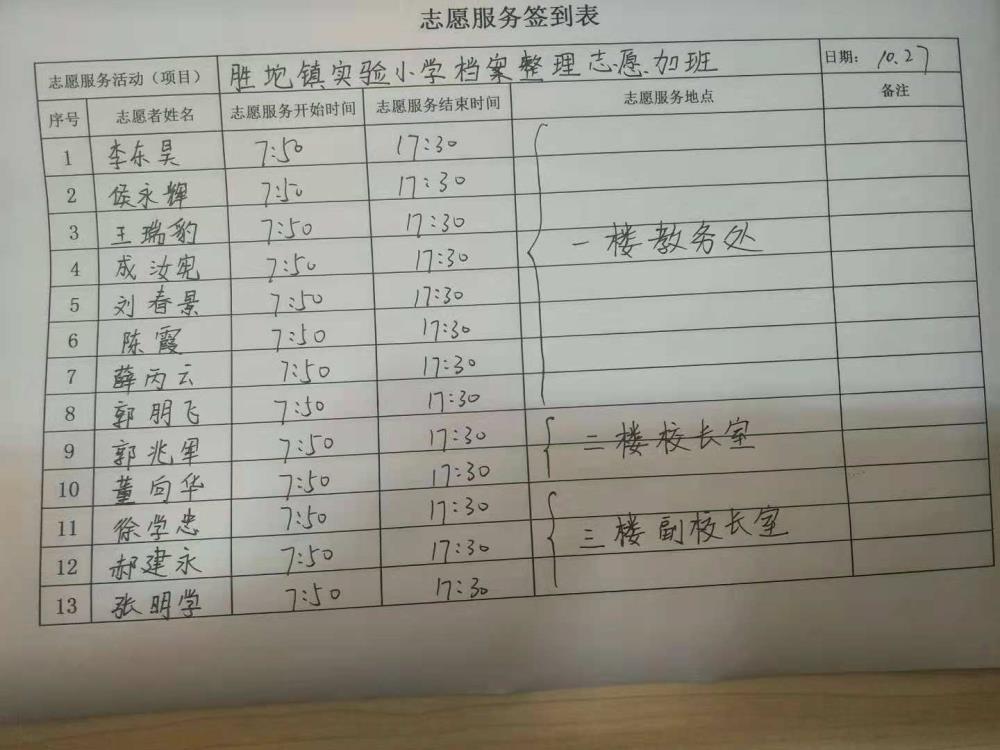 志愿服务签到表
志愿服务活动（项目） 胜坨镇实验小学档案整理志愿加班 日期： 10.27
序号 志愿者姓名 志愿服务开始时间 志愿服务结束时间 志愿服务地点 备注
1 李东昊 7:50 17:30
2 侯永辉 7:50 17:30
3 王瑞豹 7:50 17:30 一楼教务处
4 成汝宪 7:50 17:30
5 刘春景 7:50 17:30
6 陈霞 7:50 17:30
7 薛丙云 7:50 17:30
8 郭朋飞 7:50 17:30
9 郭兆军 7:50 17:30 二楼校长室
10 董向华 7:50 17:30
11 徐学忠 7:50 17:30 三楼副校长室
12 郝建永 7:50 17:30
13 张明学 7:50 17:30